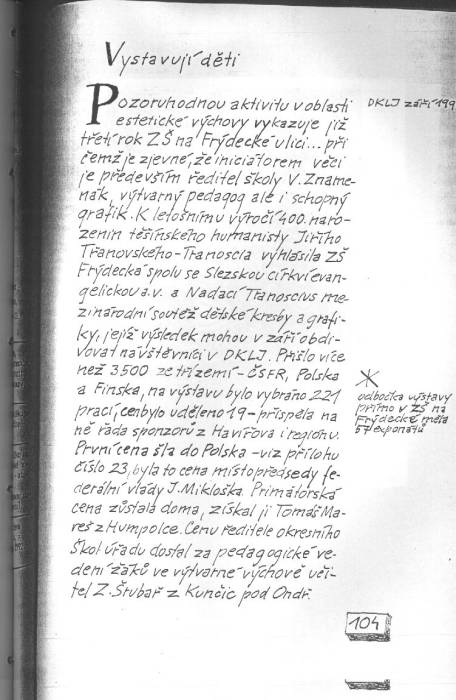 Vystavují děti
Pozoruhodnou aktivitu v oblasti
estetické výchovy vykazuje již
třetí rok ZŠ na Frýdecké ulici... při
čemž je zjevné, že iniciátorem věci
je především ředitel školy V. Zname-
nák, výtvarný pedagog ale i schopný
grafik. K letošnímu výročí 400. naro-
zenin těšínského humanisty Jiřího
Třanovského-Tranoscia vyhlásila ZŠ
Frýdecká spolu se Slezskou církví evan-
gelickou a.v. a Nadací Tranoscius me-
zinárodní soutěž dětské kresby a grafi-
ky, jejíž výsledek mohou v září obdi-
vovat návštěvníci v DKLJ. Přišlo více
než 3500 ze tří zemí - ČSFR, Polska
a Finska, na výstavu bylo vybráno 221
prací, cen bylo uděleno 19 - přispěla na
ně řada sponzorů z Havířova i regionu.
První cena šla do Polska - viz přílohu
číslo 23, byla to cena místopředsedy fe-
derální vlády J. Mikloška. Primátorská
cena zůstala doma, získal ji Tomáš Ma-
reš z Humpolce. Cenu ředitele okresního
škol. úřadu dostal za pedagogické ve-
dení žáků ve výtvarné výchově uči-
tel Z. Štubař z Kunčic pod Ondř.
DKLJ září 199
odbočka výstavy
přímo v ZŠ na
Frýdecké měla
57 exponátů
104